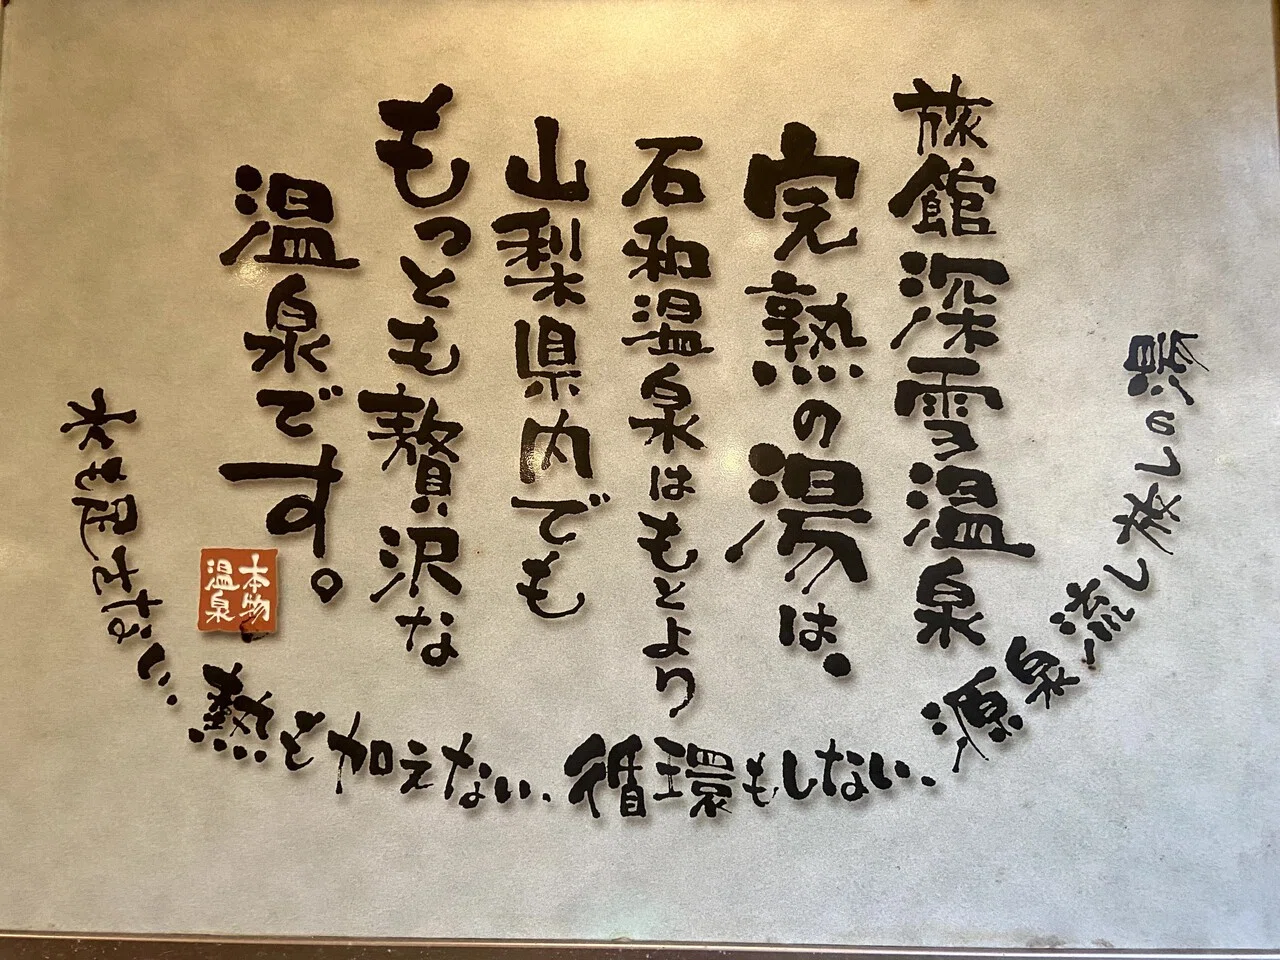 旅館深雪温泉
完熟の湯は。
石和温泉はもとより
山梨県内でも
もっとも贅沢な
温泉です。
本物
温泉
水も混ぜない、熱も加えない、循環もしない、源泉流し放しの湯